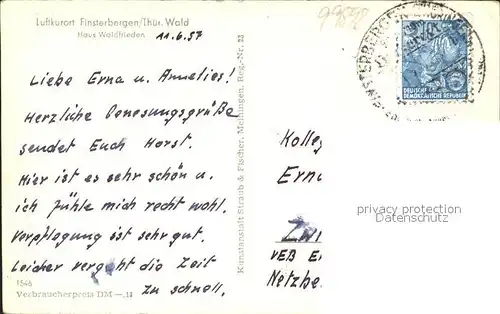 Luftkurort Finsterbergen/Thür. Wald
Haus Waldfrieden
11.6.57
Liebe Erna u. Annelies!
Herzliche Genesungsgrüße
sendet Euch Horst.
Hier ist es sehr schön u.
ich fühle mich recht wohl.
Verpflegung ist sehr gut.
Leider vergeht die Zeit
zu schnell.
1546
Verbraucherpreis DM —.18
Kunstanstalt Straub & Fischer, Meiningen, Reg.-Nr. 23
DEUTSCHE
DEMOKRATISCHE REPUBLIK
Kolleg
Erna
privacy protection
Datenschutz
VEB E
Netzbe